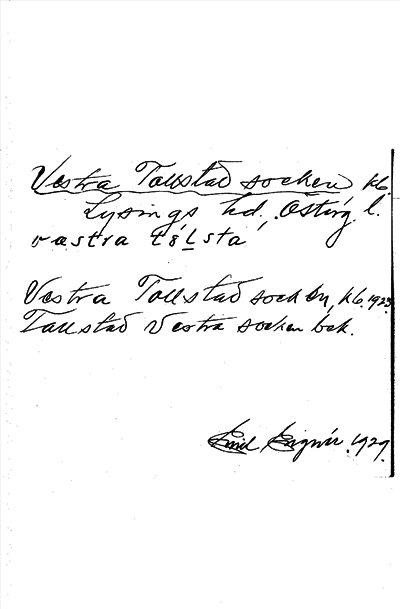 Vestra Tollstad socken kb.
Lysings hd. Östérg. l.
væstra tólsta
Vestra Tollstad sock en, kb. 1923.
Tållstad Vestra socken bok.
Emil 1929.